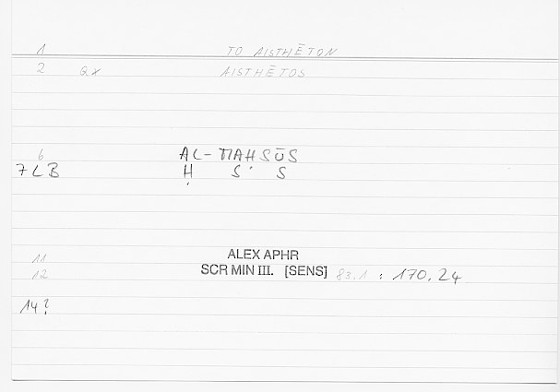 1 TO AISTHĒTON
2 QX AISTHĒTOS
6 AL-MAḤSŪS
7LB Ḥ S S
11 ALEX APHR
12 SCR MIN III. [SENS] 83.1 : 170.24
14?